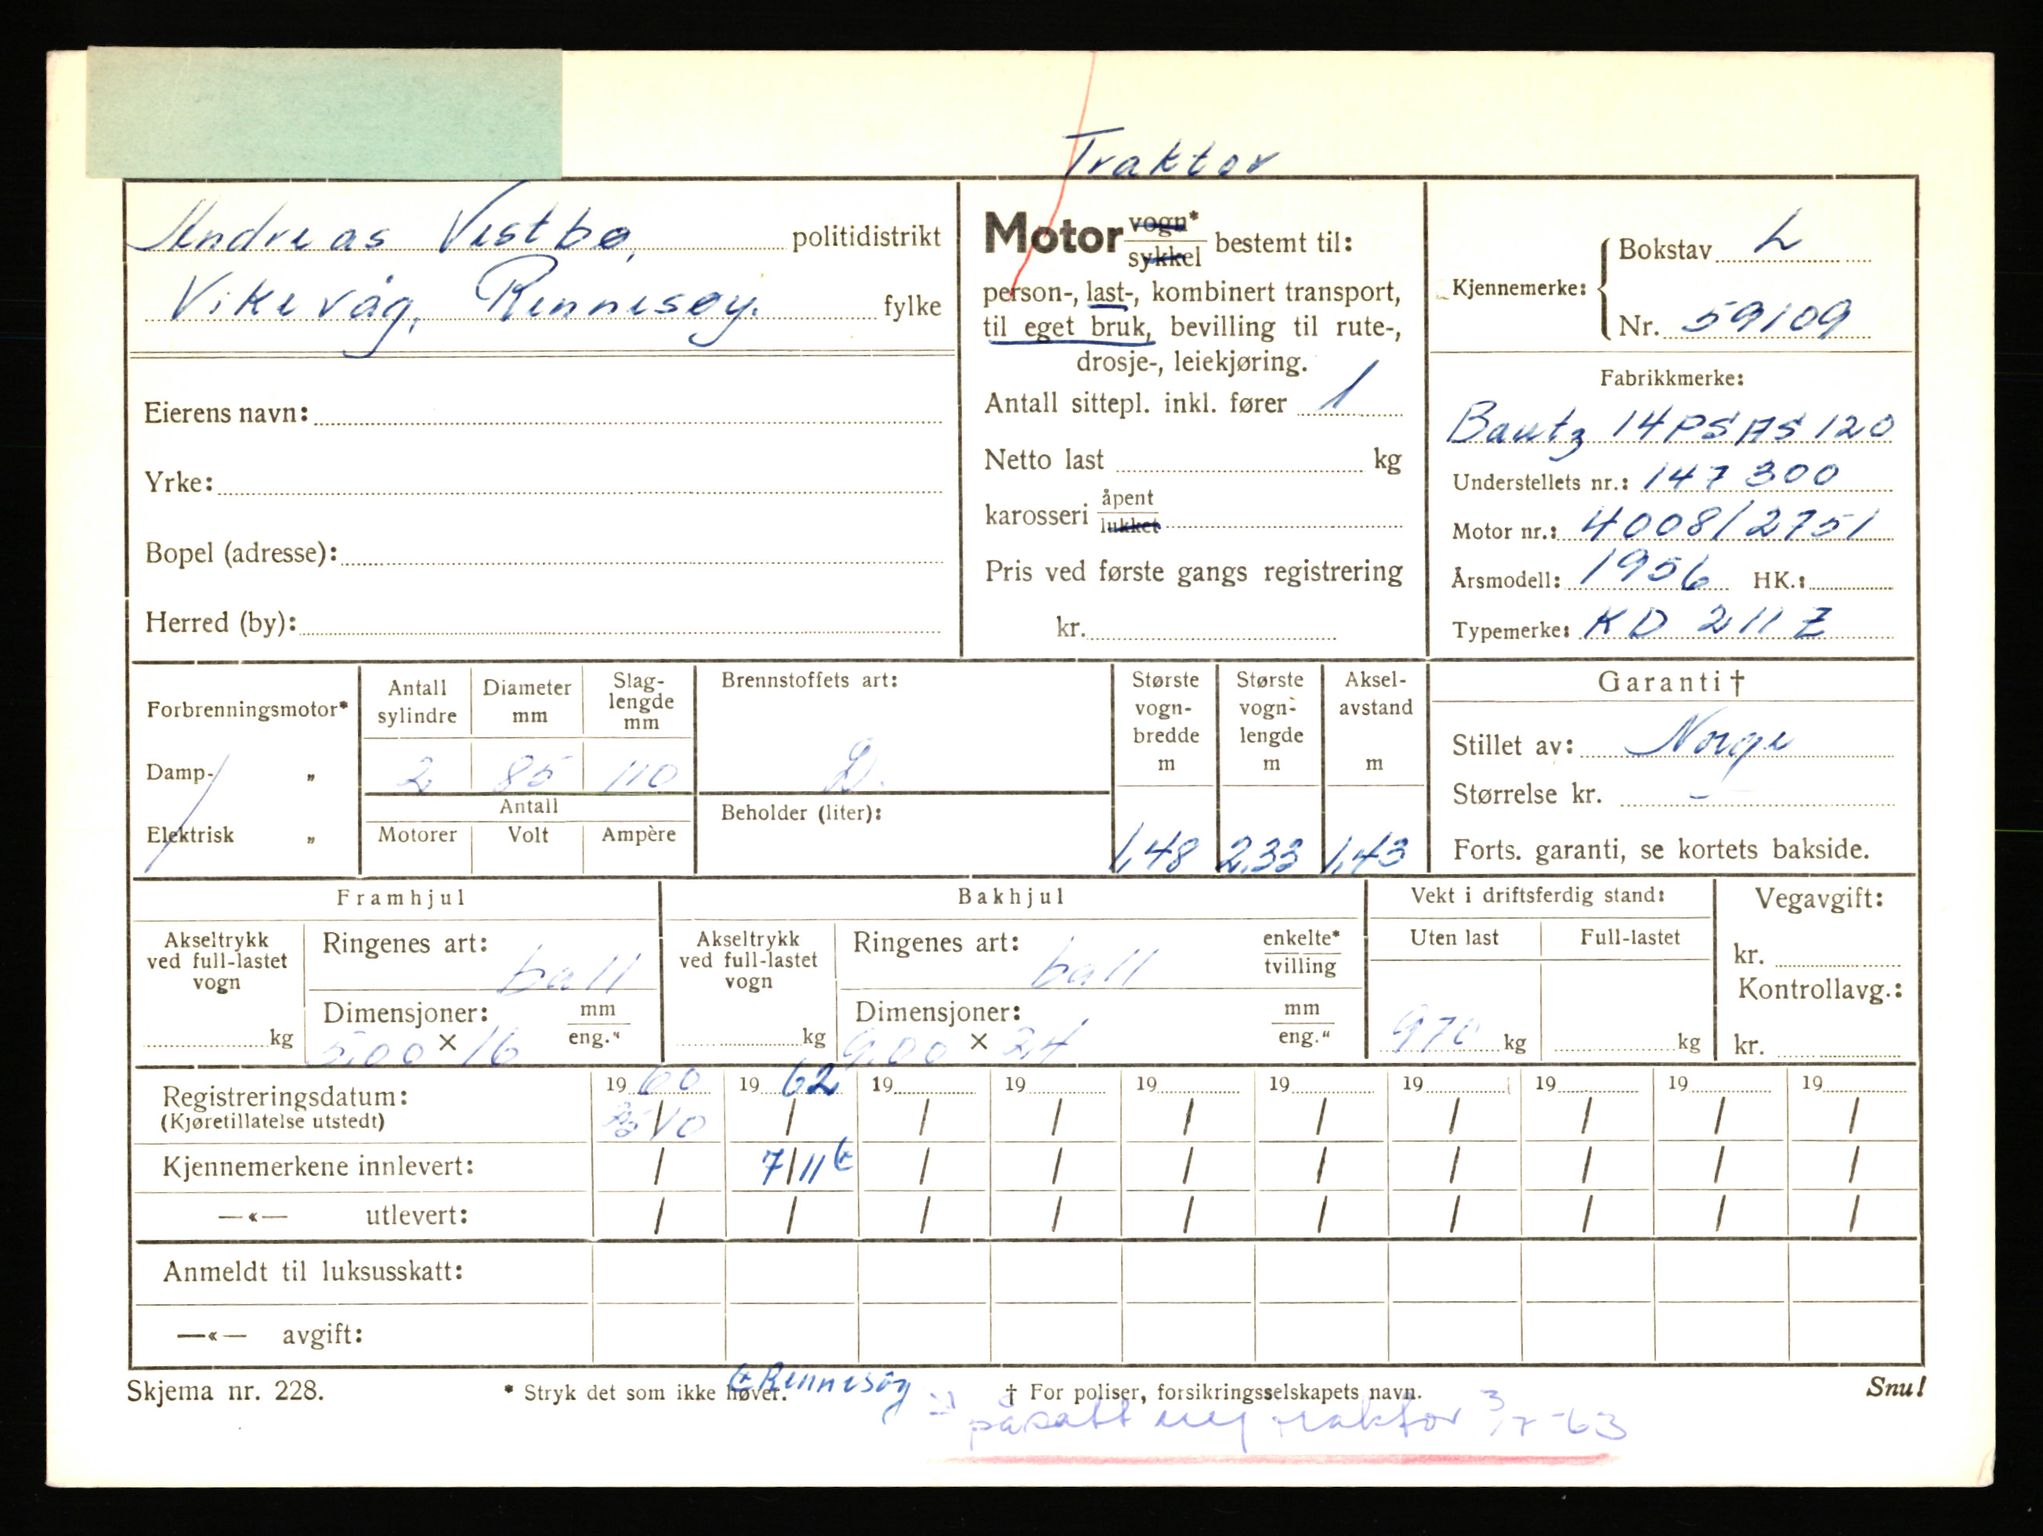 Traktor
Andreas Vestbø, politidistrikt
Vikevåg, Rennesøy. fylke
Eierens navn:
Yrke:
Bopel (adresse):
Herred (by):
Motor vogn* / sykkel bestemt til:
person-, last-, kombinert transport,
til eget bruk, bevilling til rute-,
drosje-, leiekjøring.
Antall sittepl. inkl. fører 1
Netto last kg
karosseri åpent / lukket
Pris ved første gangs registrering
kr.
Kjennemerke: Bokstav L
Nr. 59109
Fabrikkmerke:
Bautz 14 PS AS 120
Understellets nr.: 147 300
Motor nr.: 40081 2751
Årsmodell: 1956 HK.:
Typemerke: KD 211 Z
Forbrenningsmotor*
Damp- „
Elektrisk „
Antall sylindre 2
Diameter mm 85
Slag-lengde mm 110
Antall
Motorer Volt Ampère
Brennstoffets art: D.
Beholder (liter):
Største vogn-bredde m 1,48
Største vogn-lengde m 2,33
Aksel-avstand m 1,43
Garanti †
Stillet av: Norge
Størrelse kr. -
Forts. garanti, se kortets bakside.
Framhjul
Akseltrykk ved full-lastet vogn kg
Ringenes art: ball
Dimensjoner: mm / eng."
5.00 × 16
Bakhjul
Akseltrykk ved full-lastet vogn kg
Ringenes art: ball enkelte* / tvilling
Dimensjoner: mm / eng."
9.00 × 24
Vekt i driftsferdig stand:
Uten last 970 kg
Full-lastet kg
Vegavgift:
kr.
Kontrollavg.:
kr.
Registreringsdatum: 1960 1962 19 19 19 19 19 19 19 19
(Kjøretillatelse utstedt) / / / / / / / / /
Kjennemerkene innlevert: / 7/11 / / / / / / / /
—«— utlevert: / / / / / / / / / /
Anmeldt til luksusskatt:
—«— avgift:
Skjema nr. 228.
* Stryk det som ikke høver.
Rennesøy
† For poliser, forsikringsselskapets navn.
Snu!
påsatt ny traktor 3/7-63